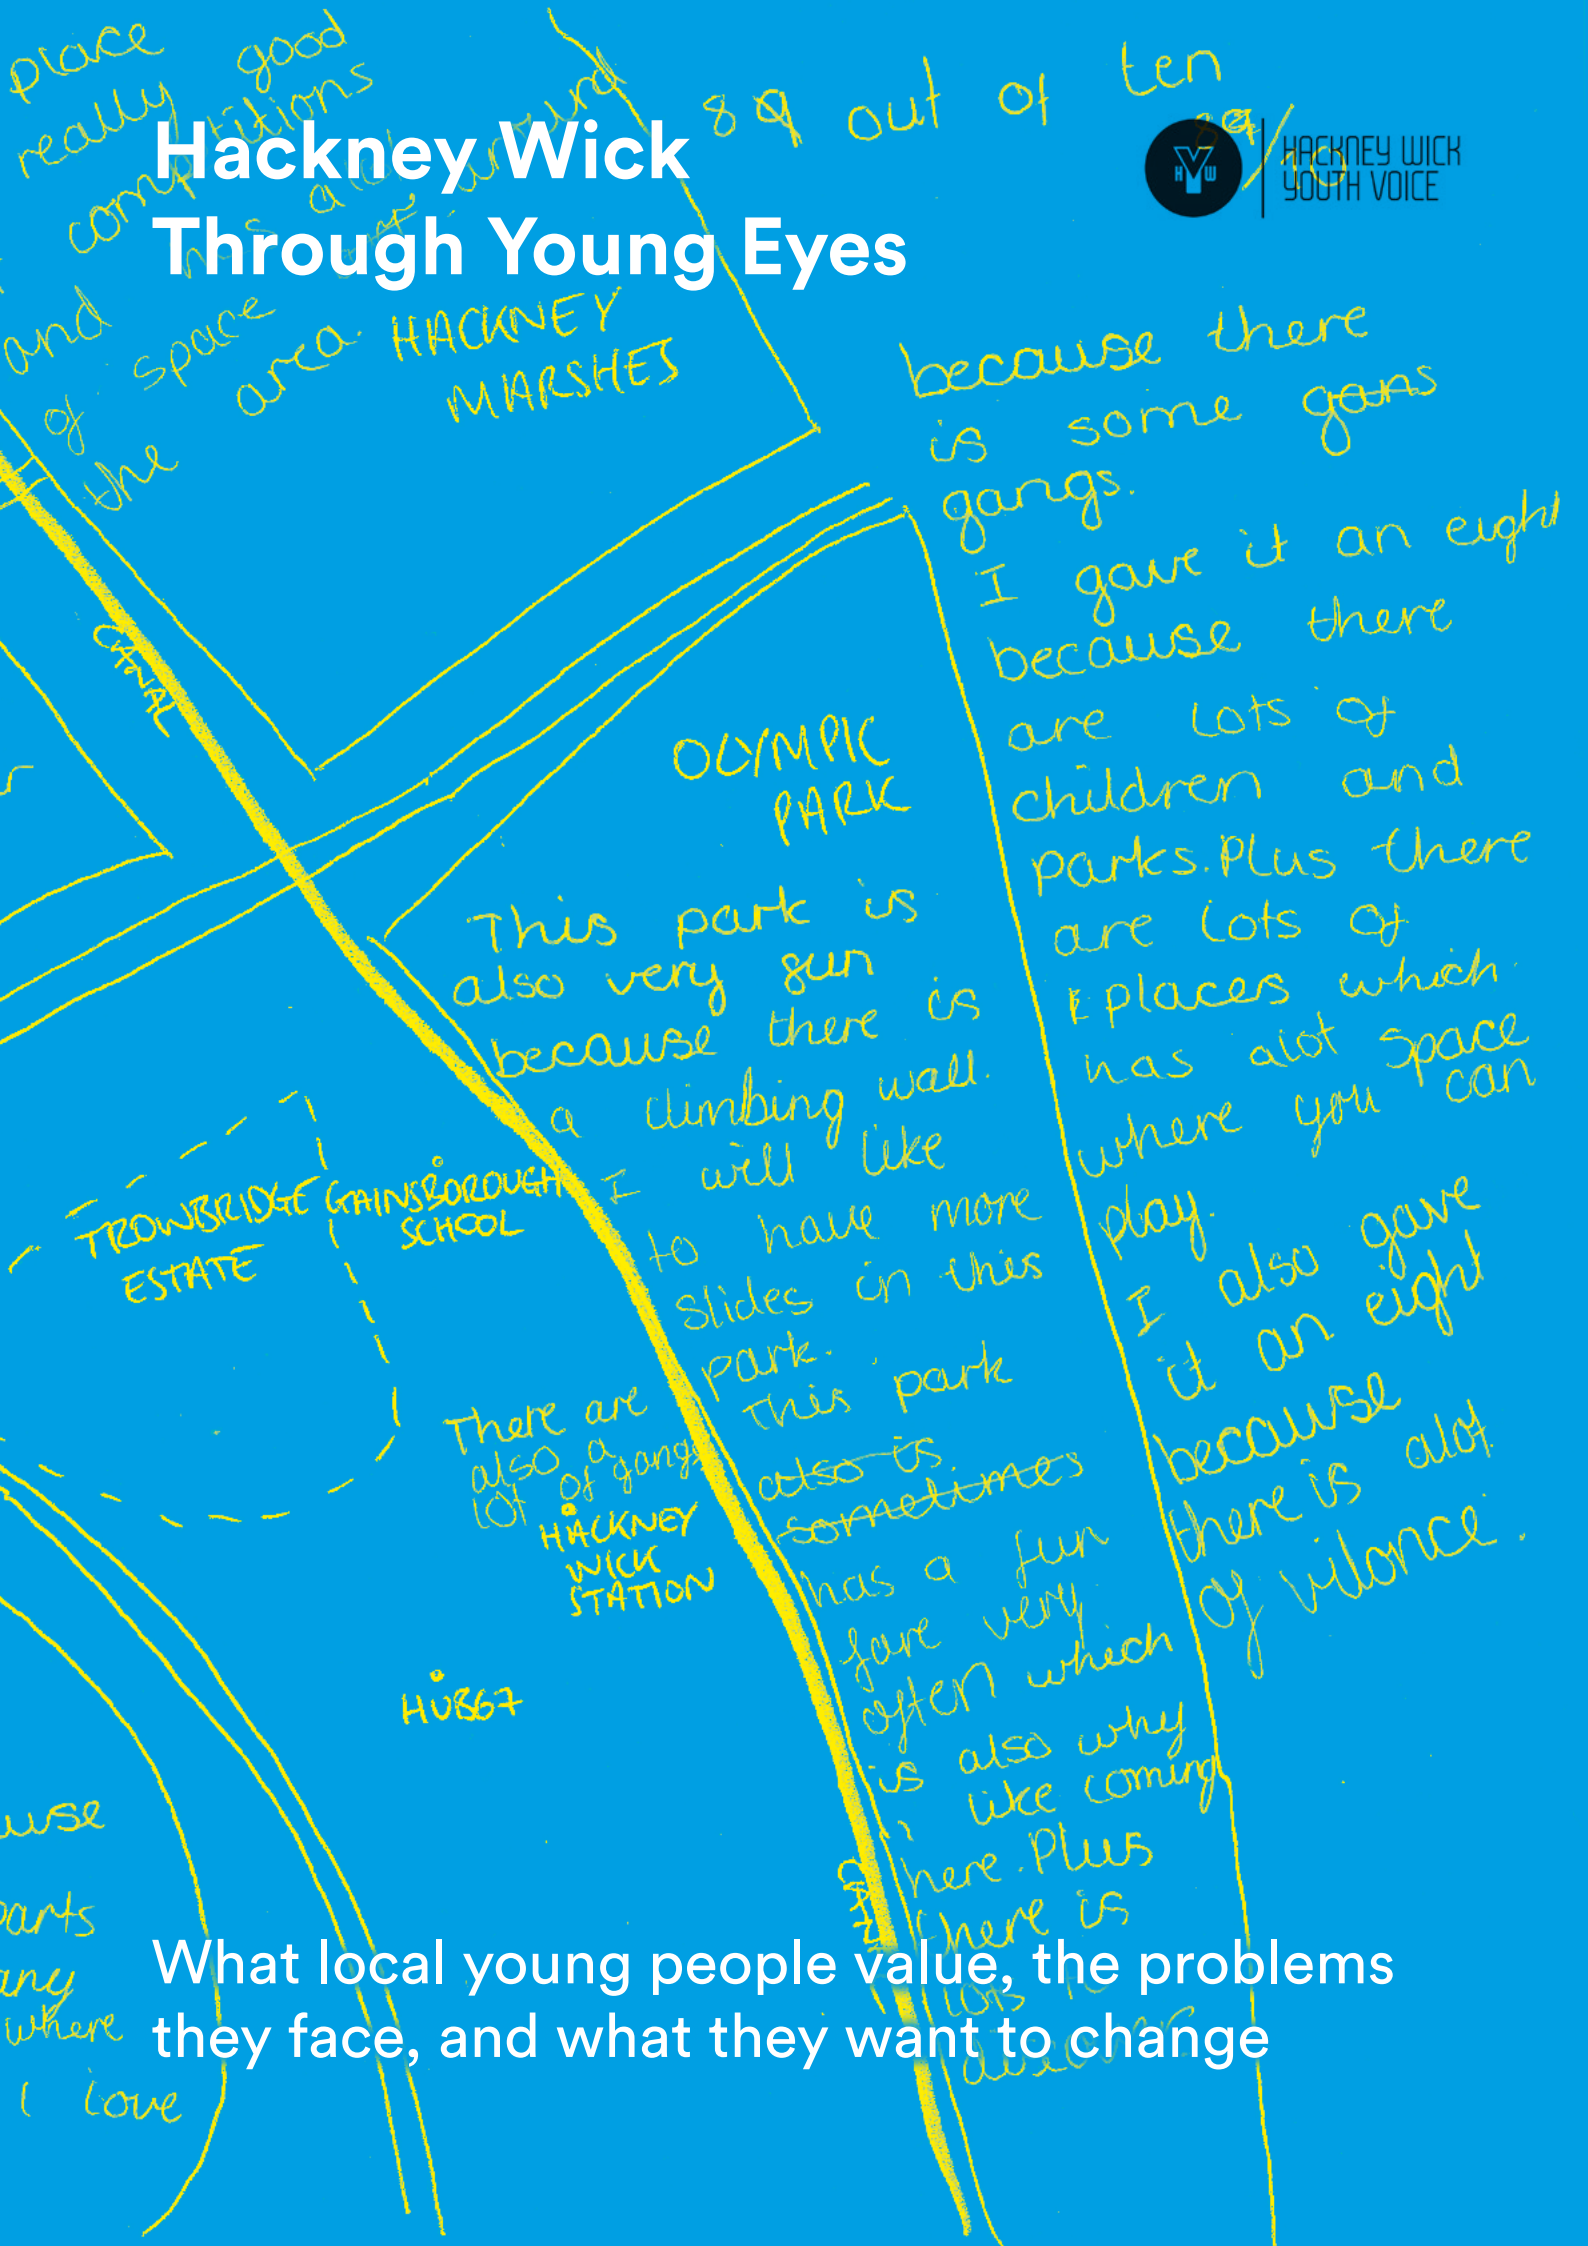 place
really good
competitions
and has alot
of space around
the area.
Hackney Wick
Through Young Eyes
89 out of ten
/10
HYW
HACKNEY WICK
YOUTH VOICE
HACKNEY
MARSHES
because there
is some gans
gangs.
I gave it an eight
because there
are lots of
children and
parks. Plus there
are lots of
places which
has alot space
where you can
play.
I also gave
it an eight
because
there is alot
of vilonce.
CANAL
OLYMPIC
PARK
This park is
also very sun
because there is
a climbing wall.
I will like
to have more
slides in this
park.
This park
also is
sometimes
has a fun
fare very
often which
is also why
like coming
here. Plus
there is
lots to
TROWBRIDGE
ESTATE
GAINSBOROUGH
SCHOOL
There are
also a
lot of gangs
HACKNEY
WICK
STATION
HUB67
CANAL
where
I love
What local young people value, the problems
they face, and what they want to change